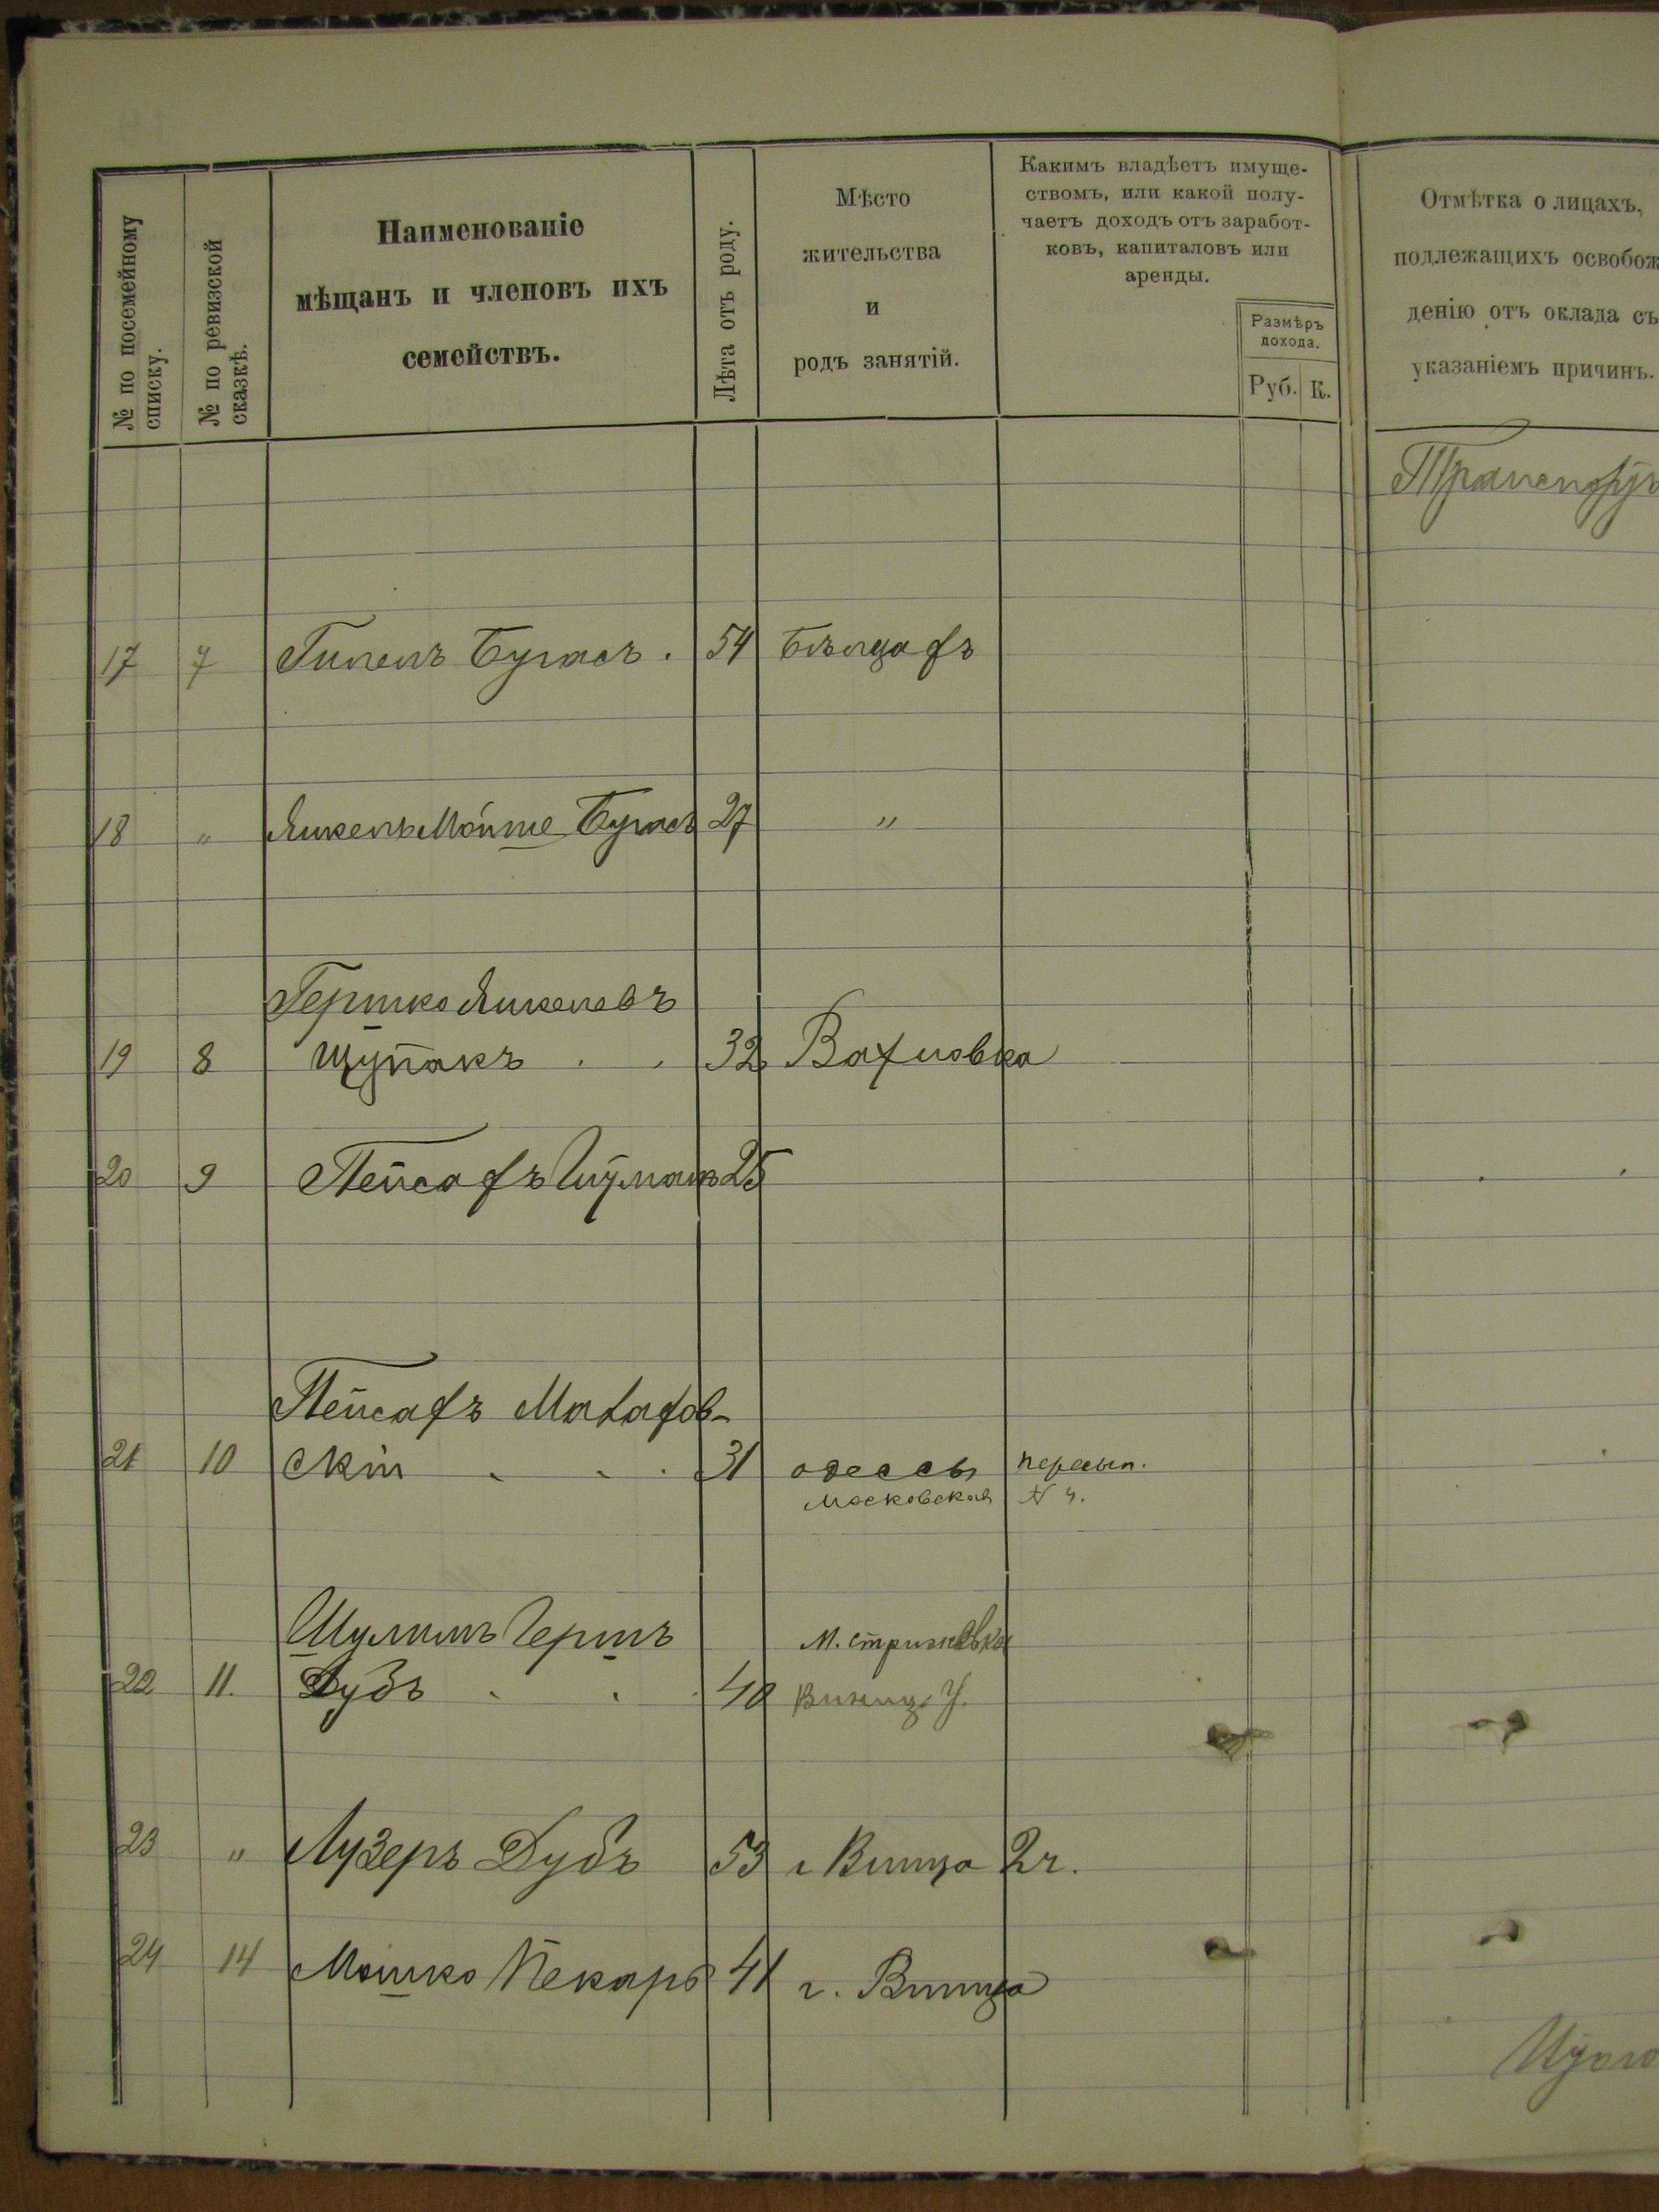 № по посемейному
списку.
№ по ревизской
сказкѣ.
Наименованіе
мѣщанъ и членовъ ихъ
семействъ.
Лѣта отъ роду.
Мѣсто
жительства
и
родъ занятій.
Какимъ владѣетъ имуще-
ствомъ, или какой полу-
чаетъ доходъ отъ заработ-
ковъ, капиталовъ или
аренды.
Размѣръ
дохода.
Руб. К.
Отмѣтка о лицахъ,
подлежащихъ освобож
денію отъ оклада съ
указаніемъ причинъ.
17 7 Гипелъ Бугасъ . 54
18 " Янкель Мойше Бугасъ 27 "
Гершко Янкелевъ
19 8 Щупакъ . . 32 Вахновка
20 9 Пейсахъ 25
Пейсахъ
21 10 скій . . . 31 Одессы Пересып.
Московская N 4.
Шулимъ Гершъ М. Стрижевка
22 11. Дубъ . . . 40 Виниц. У.
23 " Лузеръ Дубъ 53 г Виница 2 ч.
24 14 Мошко Пекарь 41 г. Виница